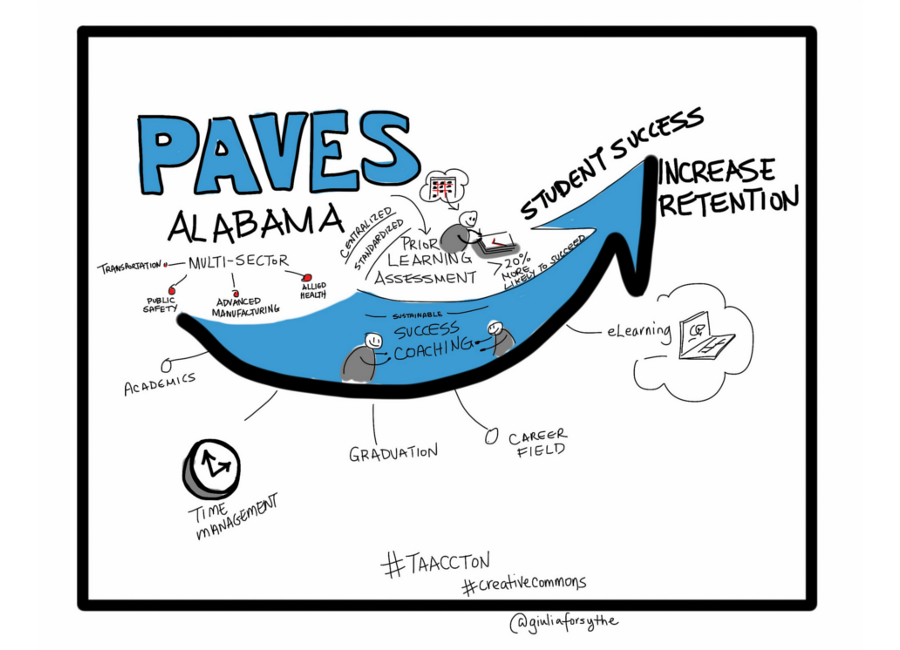 PAVES
ALABAMA
TRANSPORTATION
MULTI-SECTOR
PUBLIC
SAFETY
ADVANCED
MANUFACTURING
ALLIED
HEALTH
CENTRALIZED
STANDARDIZED
PRIOR
LEARNING
ASSESSMENT
>20%
MORE
LIKELY TO SUCCEED
STUDENT SUCCESS
INCREASE
RETENTION
SUSTAINABLE
SUCCESS
COACHING
eLearning
ACADEMICS
TIME
MANAGEMENT
GRADUATION
CAREER
FIELD
#TAACCTON
#creativecommons
@giuliaforsythe